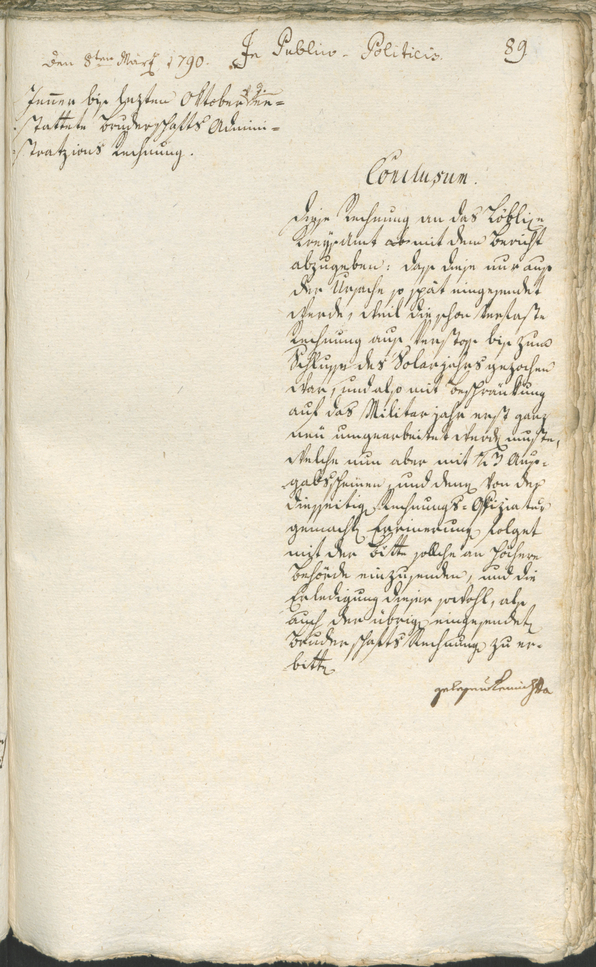 den 8ten März 1790. In Publico-Politicis. 89
Jenner bis lezten Oktober d. J. er=
stattete Bruderschafts Admini=
strazions Rechnung.
Conclusum.
diese Rechnung an das Löbliche
Kreysamt mit dem Bericht
abzugeben: daß diese nur aus
der Ursache so spät eingesendet
werde, weil die schon verfaste
Rechnung aus Verstoß bis zum
Schlusse des Solarjahrs gezochen
war, und also mit Beschränkung
auf das Militar jahr erst ganz
neu umgearbeitet werden muste,
welche nun aber mit 123 Aus=
gabsscheinen, und denen von der
diesseitigen Rechnungs-Offiziatur
gemachten Erinnerungen folget
mit der Bitte solche an Höhere
Behörde einzusenden, und die
Erledigung dieser sowohl, als
auch der übrigen eingesendeten
Bruderschafts Rechnungen zu er=
bitten